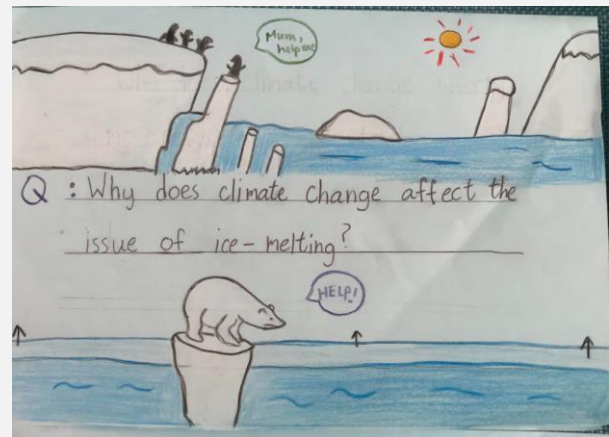 Mum,
help me
Q : Why does climate change affect the
issue of ice-melting?
HELP!